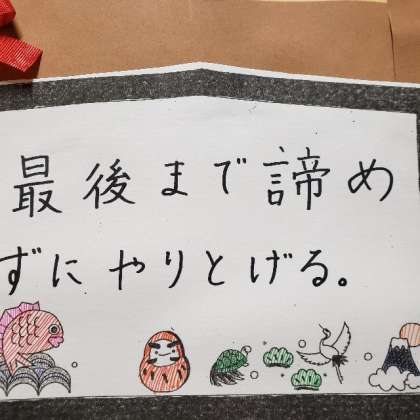 最後まで諦め
ずにやりとげる。